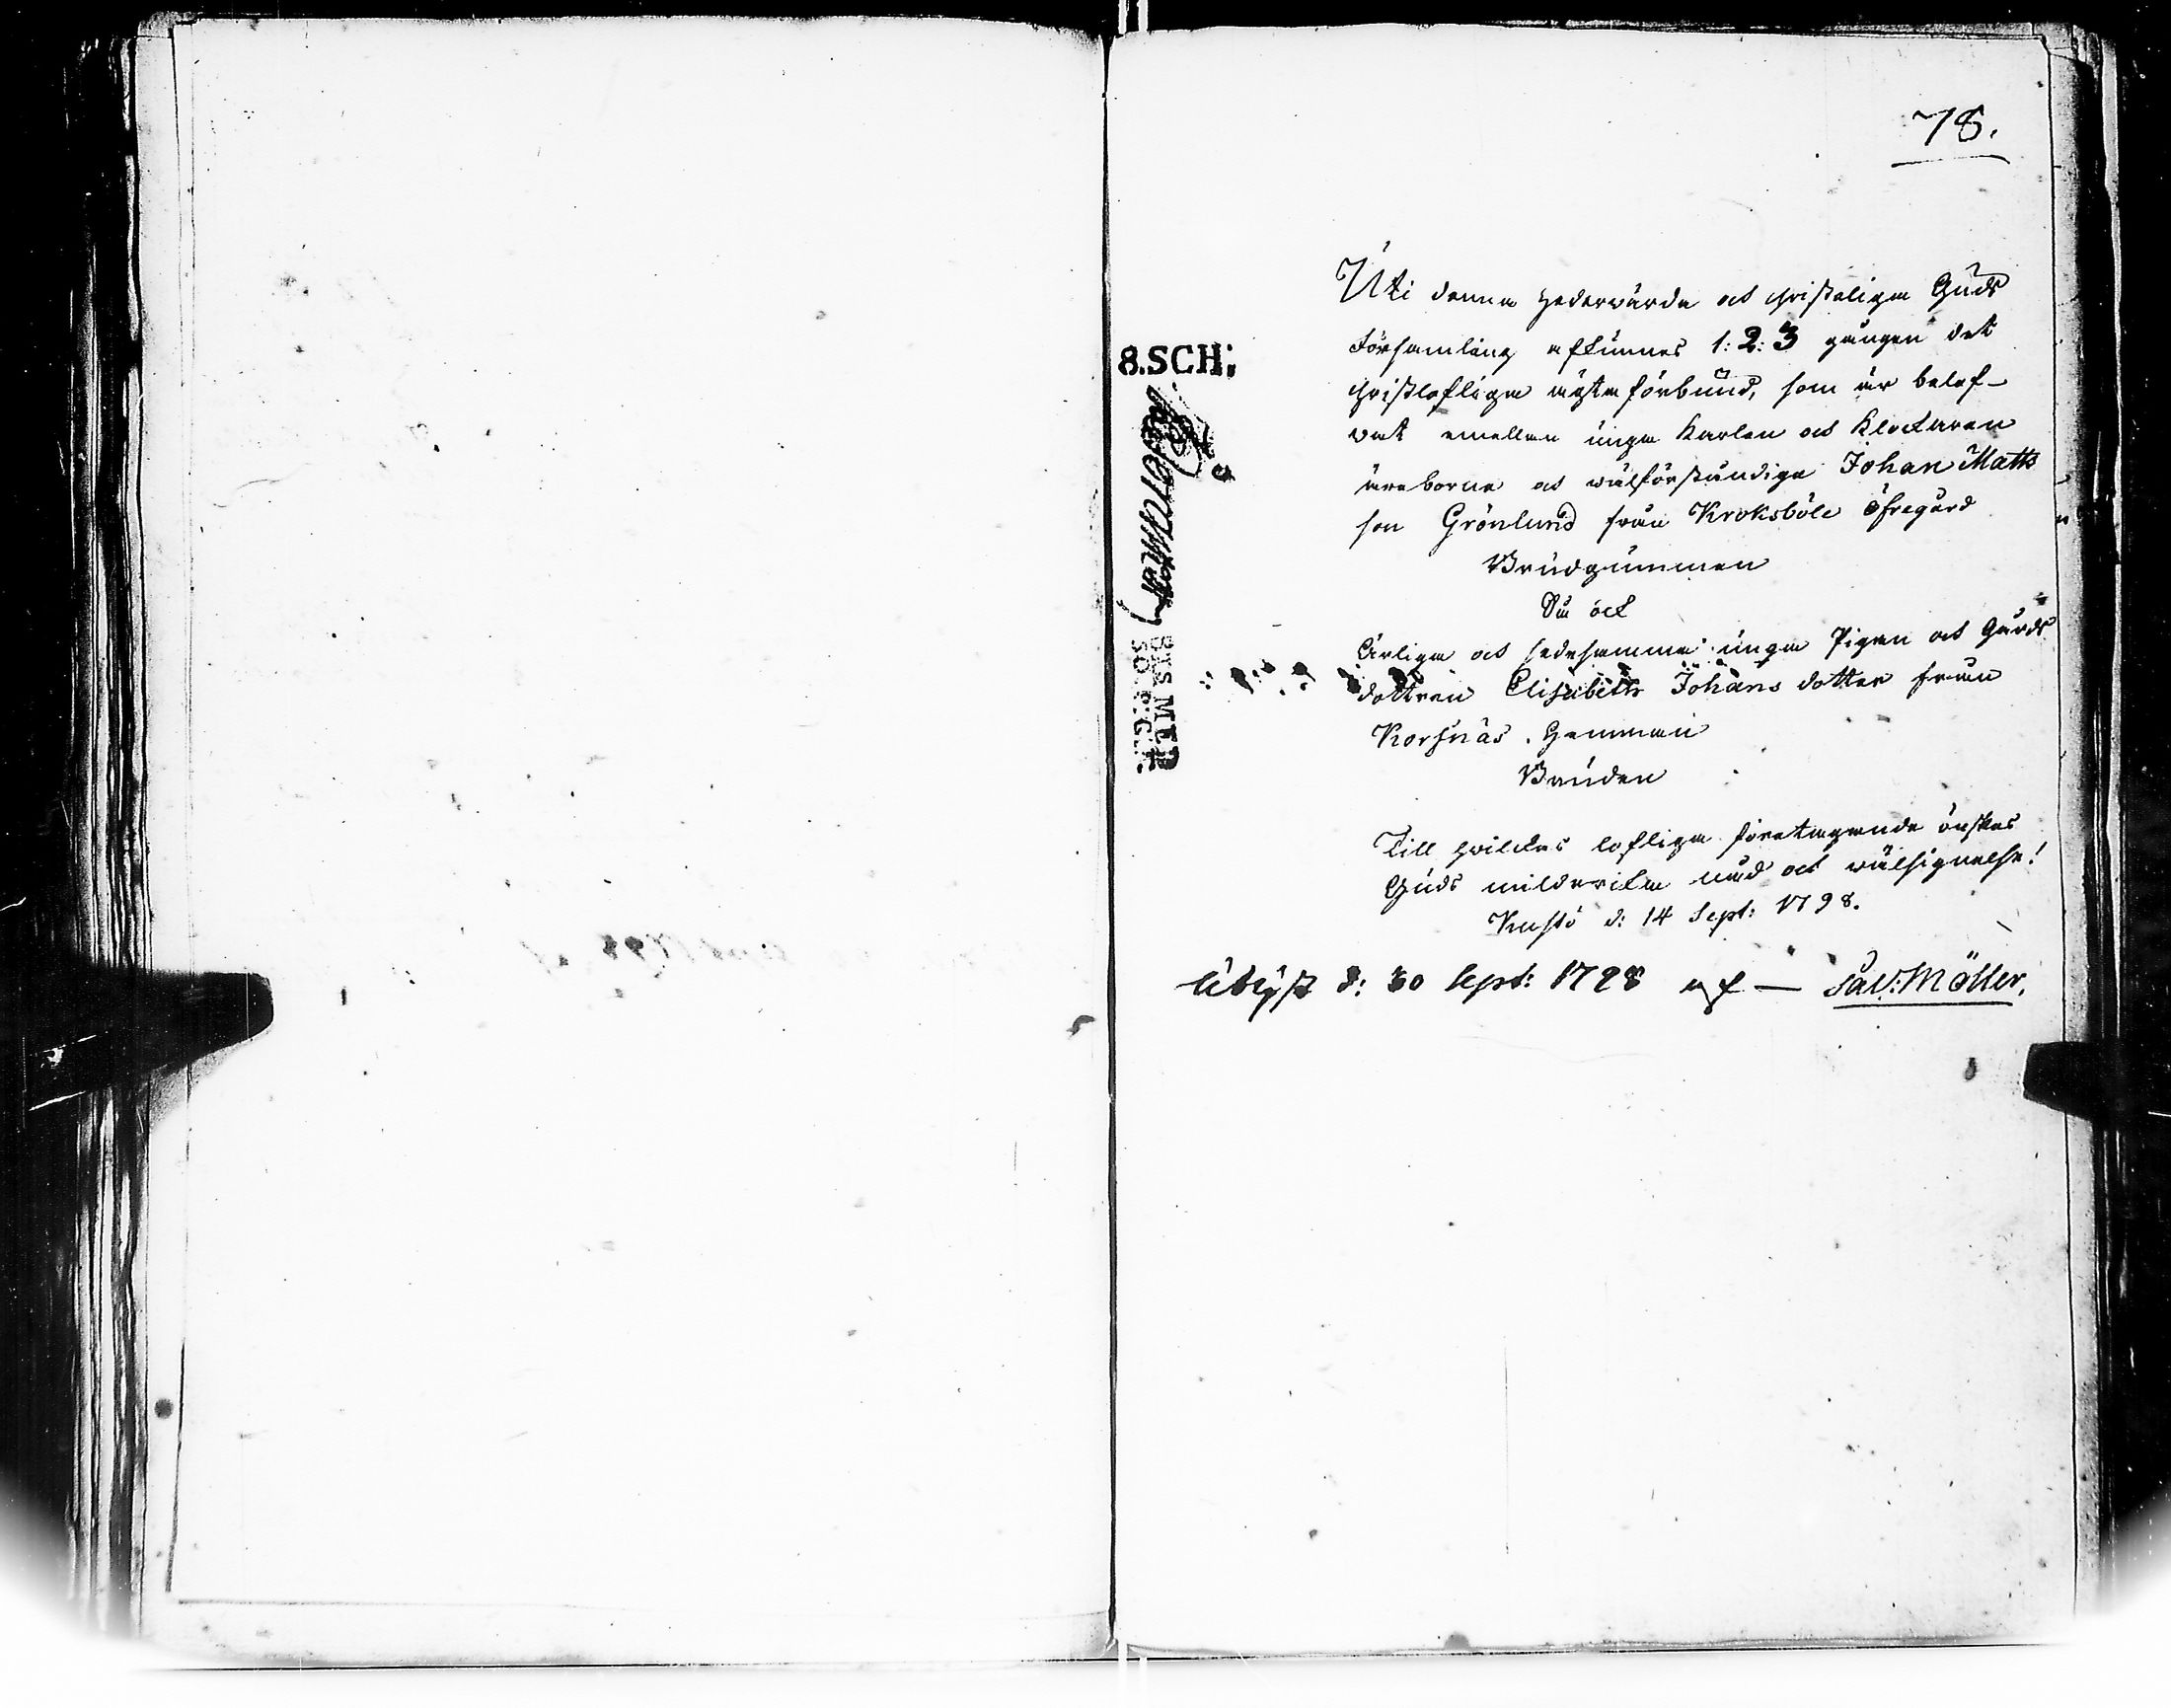 78.
Uti denna hedervärda och christeliga Guds
Församling aflünnes 1: 2: 3 gången det
christlofliga ägta förbund, som är belef-
vat emellan unga Karlen och Klockaren
äreborne och wälförståndige Johan Matts
son Grönlund från Kroksböle öfregård
Brudgummen
Så ock
Ärliga och sedesamma unga Pigan och Gårds
dottren Elisabeth Johans dotter från
Korsnäs Hemman
Bruden
Till hvilckas lofliga företagande önskas
Guds milderika nåd och wälsignelse!
d: 14 Sept: 1798.
Utlyst d: 30 Sept: 1798 af — Sal: Möller.
8.SCH:
8 SS MLR